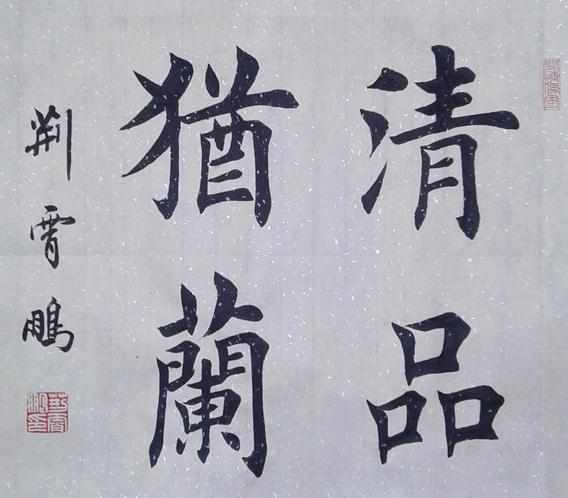 清品
猶蘭
荆霄鵬